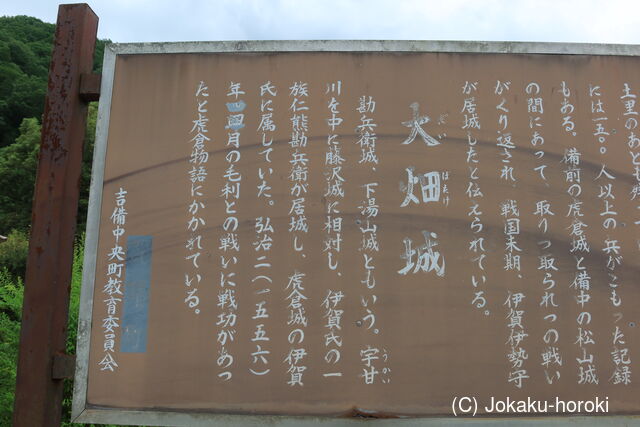 土里のあ
には一五〇人以上の兵がこもった記録
もある。備前の虎倉城と備中の松山城
の間にあって、取りつ取られつの戦い
がくり返され、戦国末期、伊賀伊勢守
が居城したと伝えられている。
大畑城
勘兵衛城、下湯山城ともいう。宇甘
うかい
川を中に藤沢城に相対し、伊賀氏の一
族仁熊勘兵衛が居城し、虎倉城の伊賀
氏に属していた。弘治二(一五五六)
年四月の毛利との戦いに戦功があっ
たと虎倉物語にかかれている。
吉備中央町教育委員会
(C) Jokaku-horoki